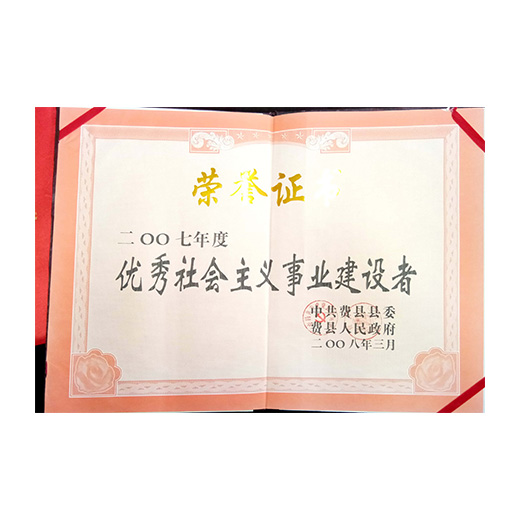 荣誉证书
二〇〇七年度
优秀社会主义事业建设者
中共费县县委
费县人民政府
二〇〇八年三月